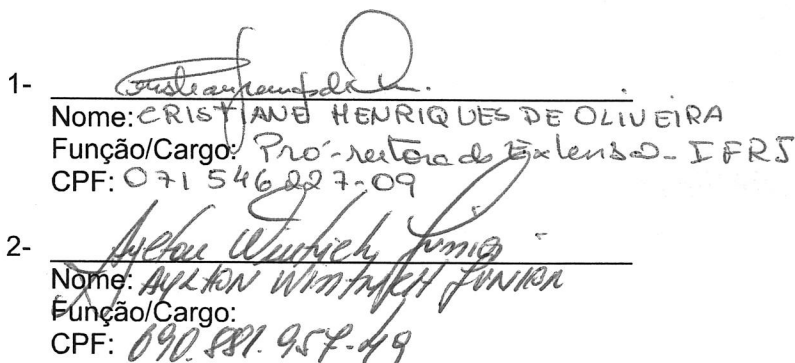 1-
Nome: CRISTIANE HENRIQUES DE OLIVEIRA
Função/Cargo: Pró-reitora de Extensão - IFRJ
CPF: 071 546 227-09
2- Junior
Nome: AYLTON JUNIOR
Função/Cargo:
CPF: 690.881.957-49